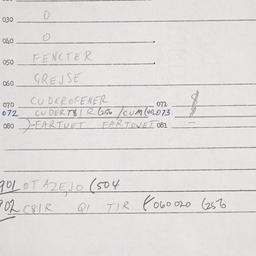 030 O
040 O
050 FENCTER
060 GREJSE
070 CUDEROFENER 071
072 CUDERT 073
080 FARTUET FARTOVET 081
901 OT AZEJO (504
902 C81R Q1 TIR 060 020 (256